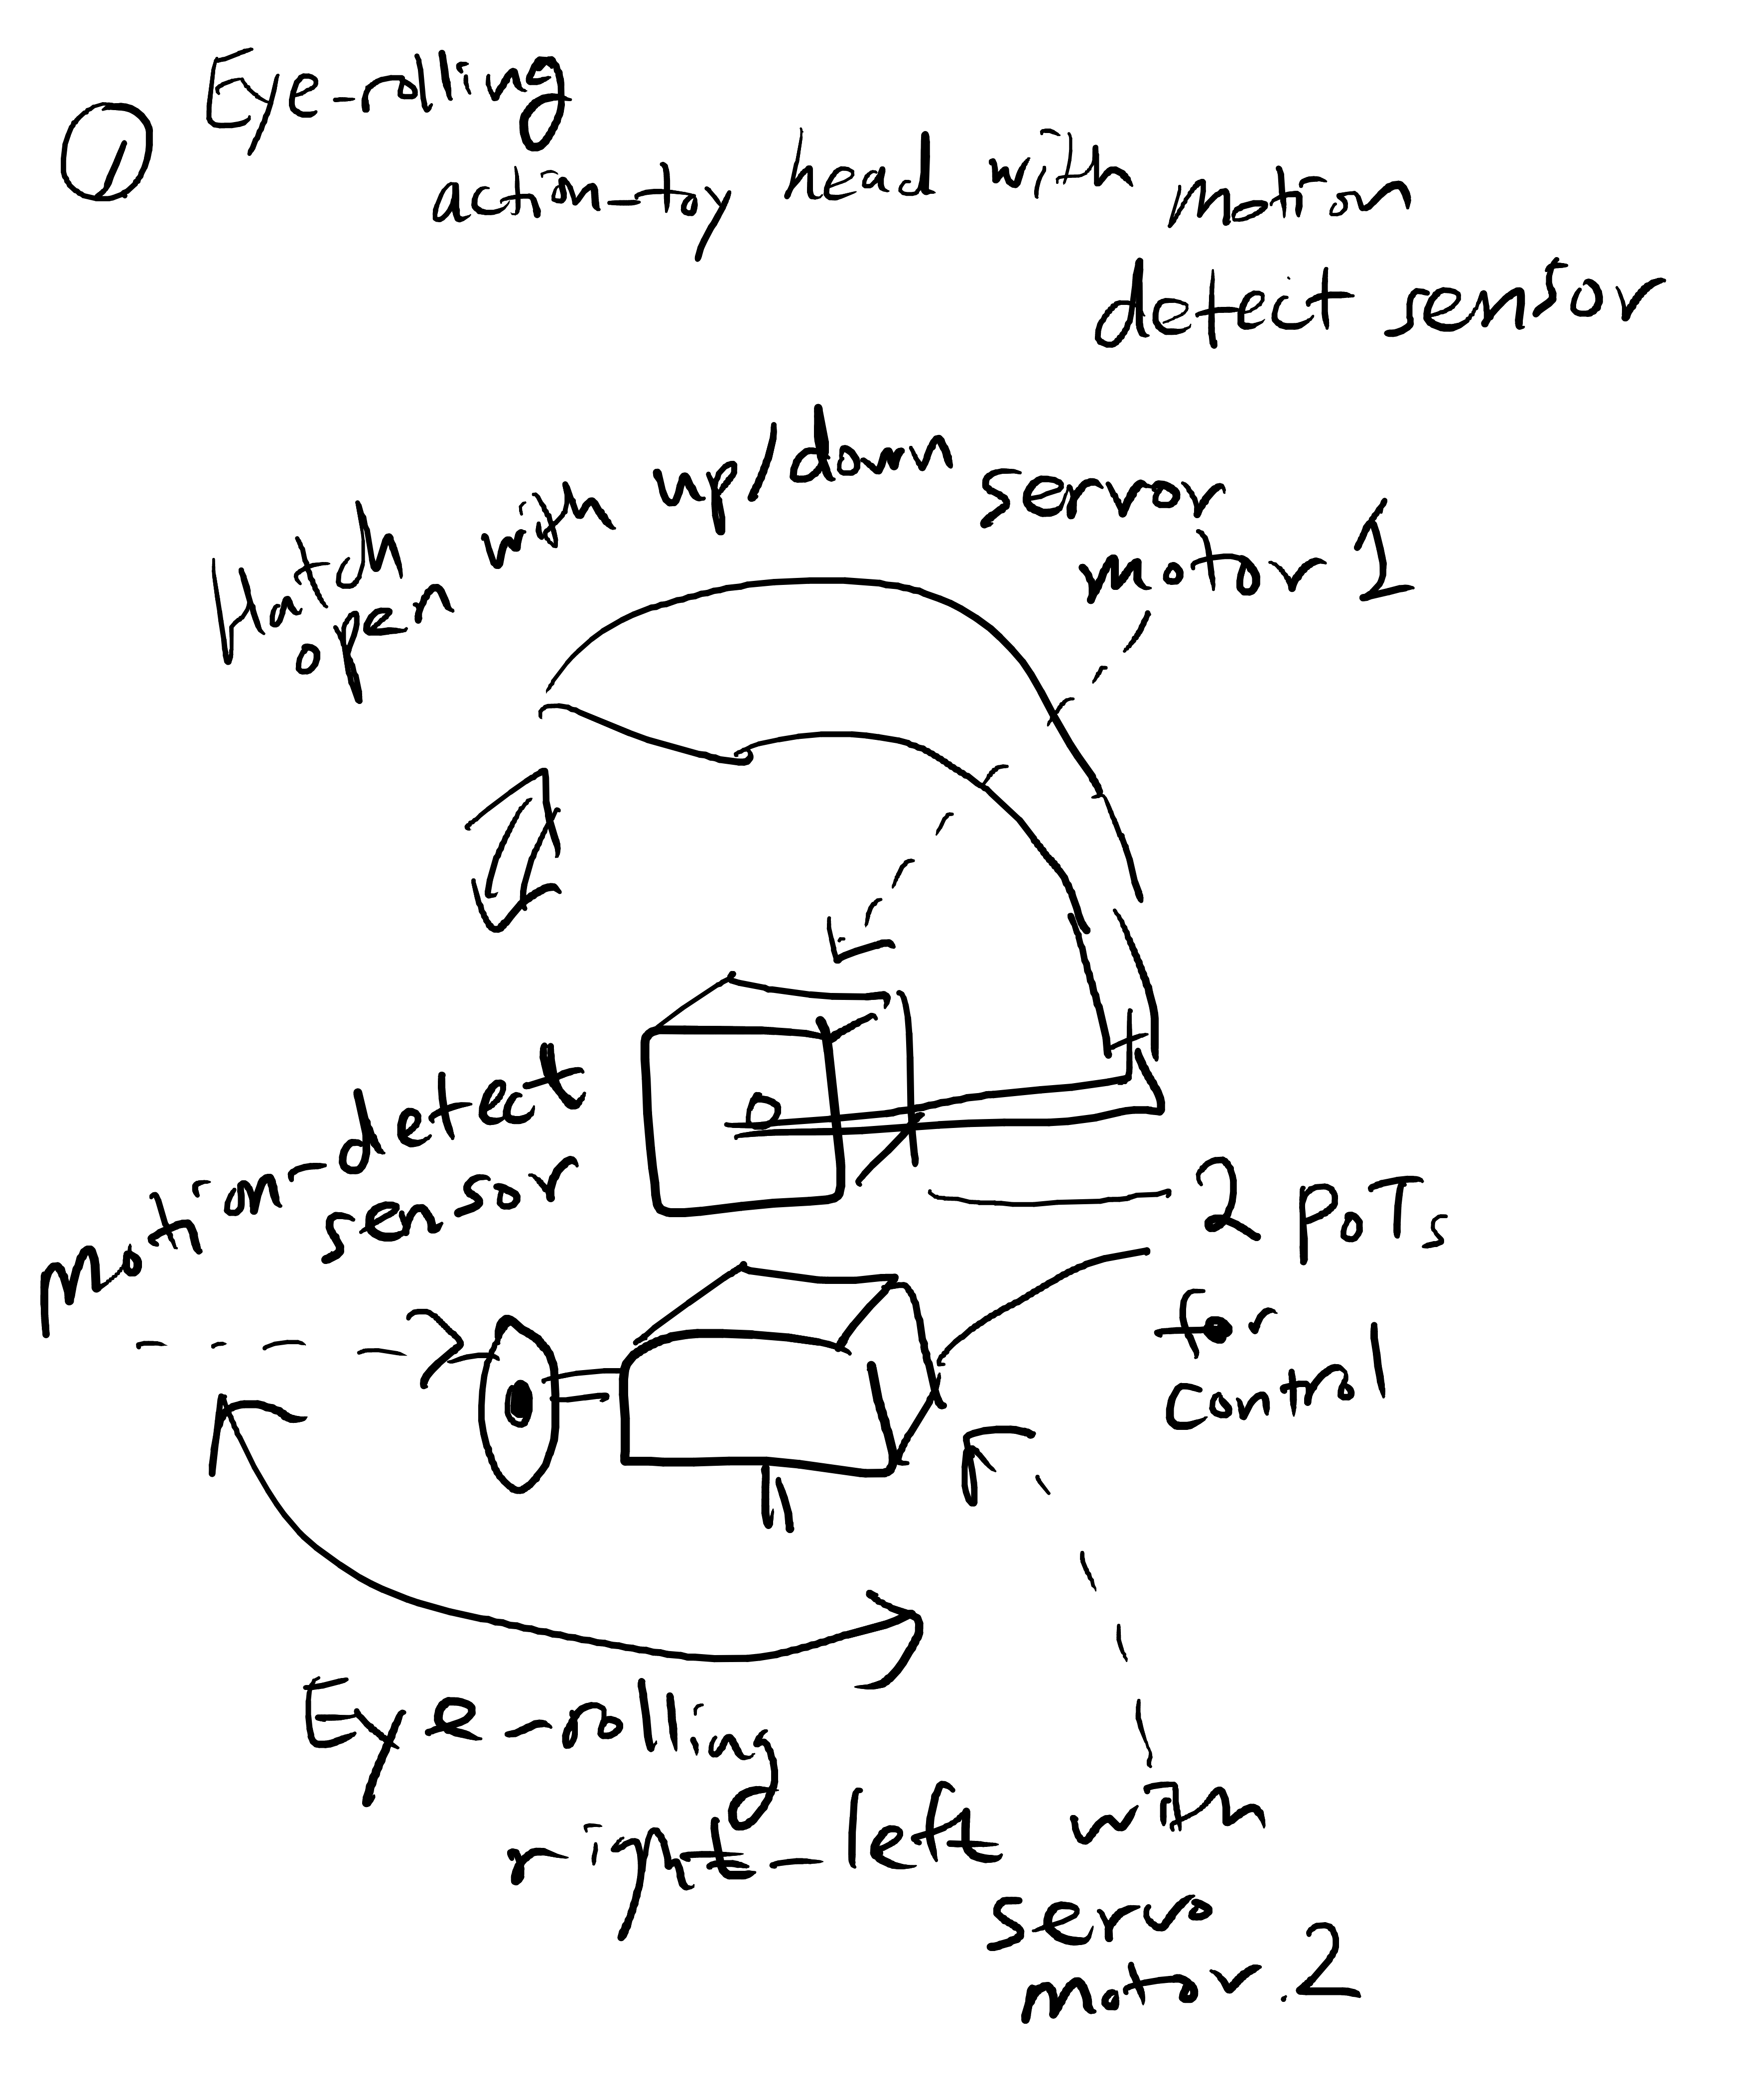 1
Eye-rolling
action-toy head with motion
detect sensor
Hatch open with up/down servor
motor 1
motion-detect
sensor
2 POTs
for
control
Eye-rolling
right-left with
servo
motor.2